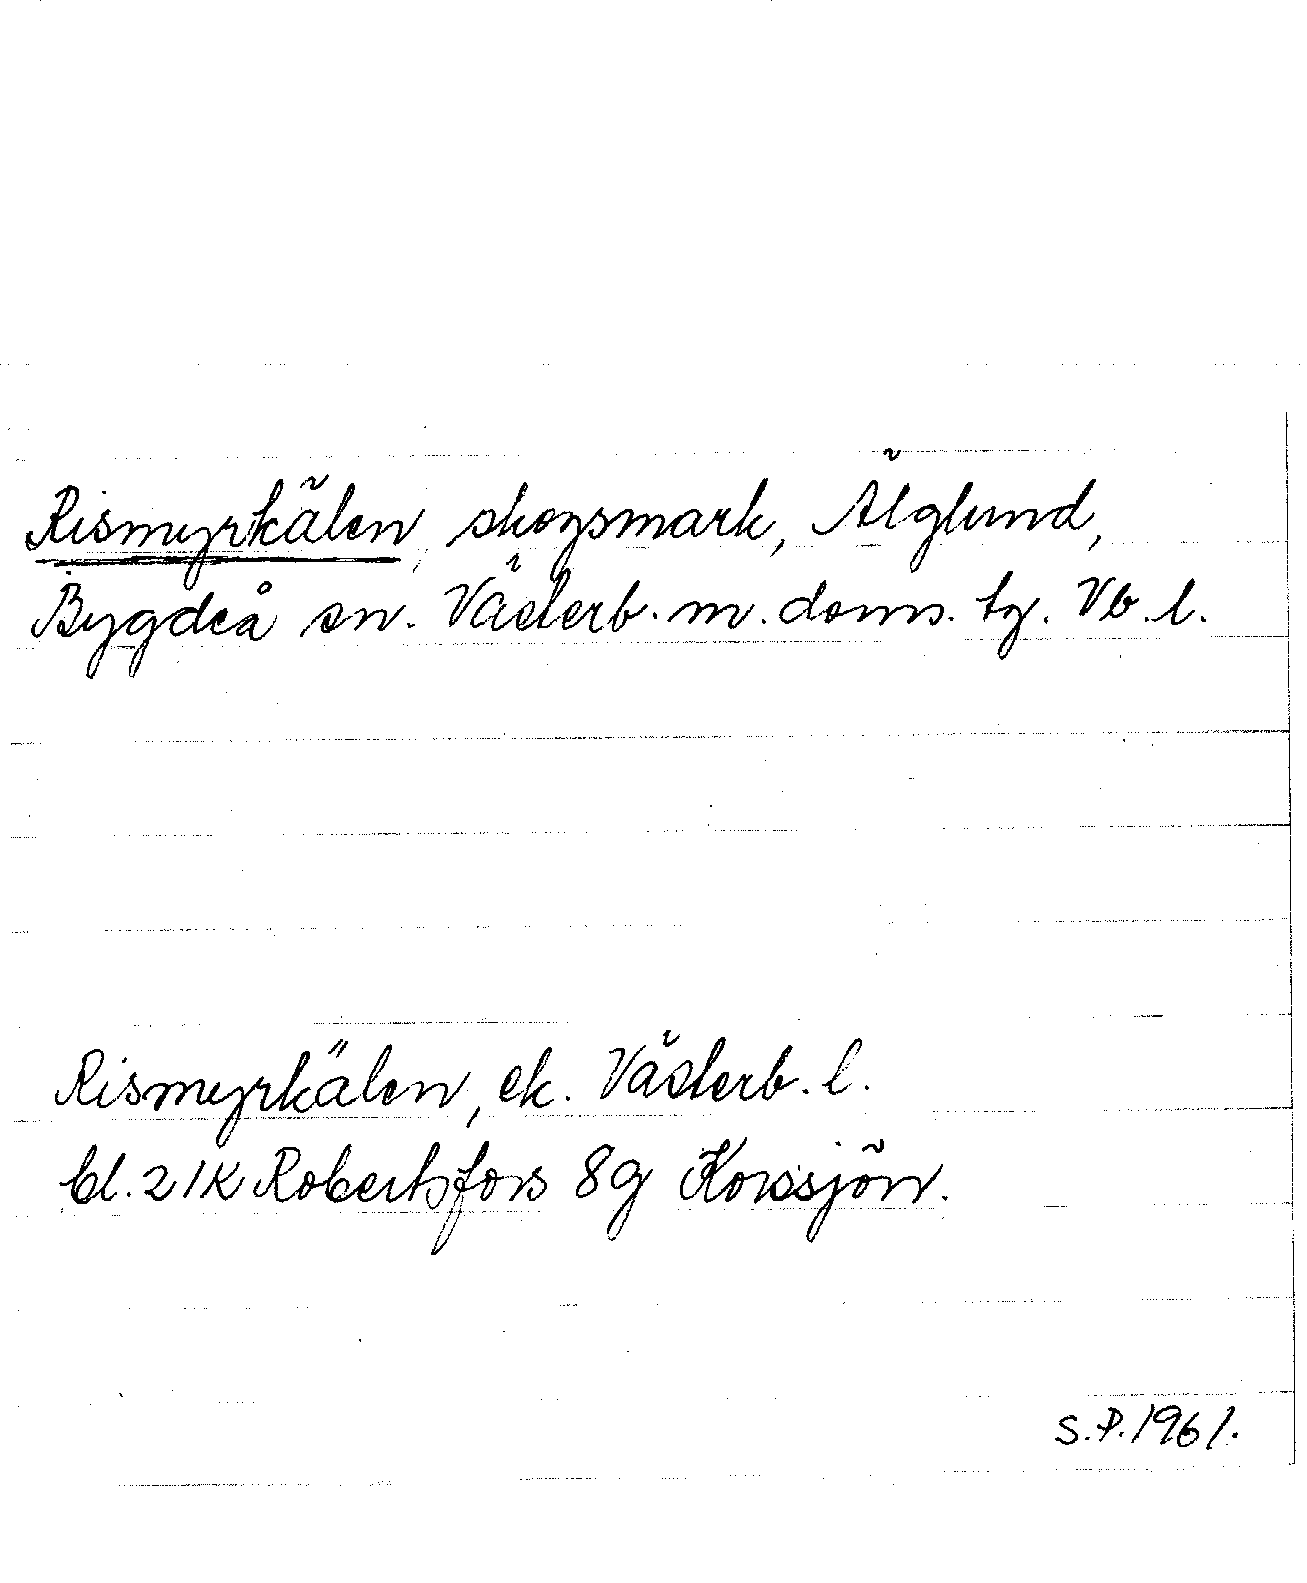 Rismyrkälen, skogsmark, Älglund,
Bygdeå sn. Västerb. m. doms. tg. Vb. l.
Rismyrkälen, ek. Västerb. l.
bl. 21K Robertsfors 8g Korssjön.
S.P. 1961.